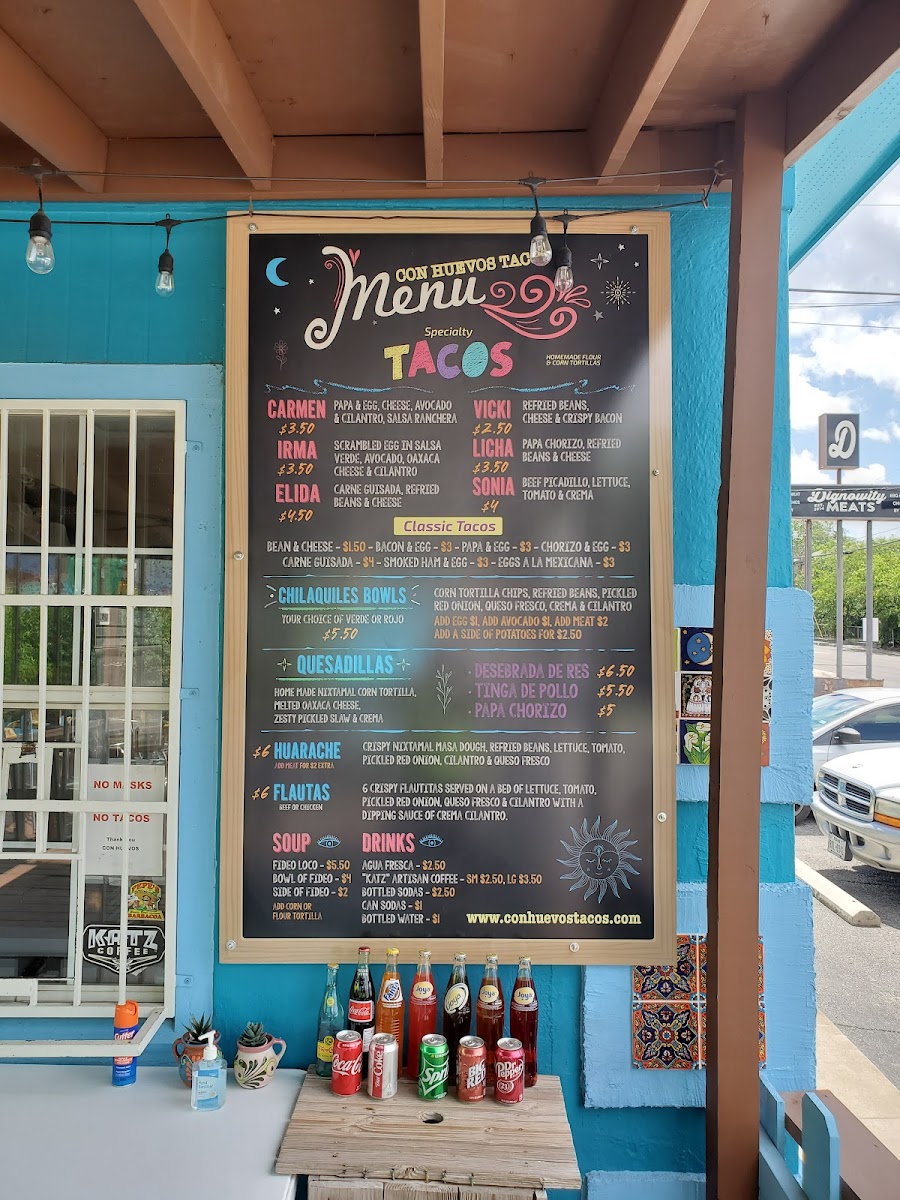 CON HUEVOS TAC
Menu
Specialty
TACOS
HOMEMADE FLOUR
& CORN TORTILLAS
CARMEN
$3.50
PAPA & EGG, CHEESE, AVOCADO
& CILANTRO, SALSA RANCHERA
VICKI
$2.50
REFRIED BEANS,
CHEESE & CRISPY BACON
IRMA
$3.50
SCRAMBLED EGG IN SALSA
VERDE, AVOCADO, OAXACA
CHEESE & CILANTRO
LICHA
$3.50
PAPA CHORIZO, REFRIED
BEANS & CHEESE
ELIDA
$4.50
CARNE GUISADA, REFRIED
BEANS & CHEESE
SONIA
$4
BEEF PICADILLO, LETTUCE,
TOMATO & CREMA
Classic Tacos
BEAN & CHEESE - $1.50 - BACON & EGG - $3 - PAPA & EGG - $3 - CHORIZO & EGG - $3
CARNE GUISADA - $4 - SMOKED HAM & EGG - $3 - EGGS A LA MEXICANA - $3
CHILAQUILES BOWLS
YOUR CHOICE OF VERDE OR ROJO
$5.50
CORN TORTILLA CHIPS, REFRIED BEANS, PICKLED
RED ONION, QUESO FRESCO, CREMA & CILANTRO
ADD EGG $1, ADD AVOCADO $1, ADD MEAT $2
ADD A SIDE OF POTATOES FOR $2.50
QUESADILLAS
HOME MADE NIXTAMAL CORN TORTILLA,
MELTED OAXACA CHEESE,
ZESTY PICKLED SLAW & CREMA
· DESEBRADA DE RES $6.50
· TINGA DE POLLO $5.50
· PAPA CHORIZO $5
$6 HUARACHE
ADD MEAT FOR $2 EXTRA
CRISPY NIXTAMAL MASA DOUGH, REFRIED BEANS, LETTUCE, TOMATO,
PICKLED RED ONION, CILANTRO & QUESO FRESCO
$6 FLAUTAS
BEEF OR CHICKEN
6 CRISPY FLAUTITAS SERVED ON A BED OF LETTUCE, TOMATO,
PICKLED RED ONION, QUESO FRESCO & CILANTRO WITH A
DIPPING SAUCE OF CREMA CILANTRO.
SOUP
FIDEO LOCO - $5.50
BOWL OF FIDEO - $4
SIDE OF FIDEO - $2
ADD CORN OR
FLOUR TORTILLA
DRINKS
AGUA FRESCA - $2.50
"KATZ" ARTISAN COFFEE - SM $2.50, LG $3.50
BOTTLED SODAS - $2.50
CAN SODAS - $1
BOTTLED WATER - $1
www.conhuevostacos.com
NO MASKS
NO TACOS
Thank you
CON HUEVOS
PEPE'S
BARBACOA
KATZ
COFFEE
D
Dignowity
MEATS
Coca-Cola
Fanta
Joya
Joya
Joya
Joya
Coca-Cola
Coke
Sprite
BIG
RED
Dr Pepper
23